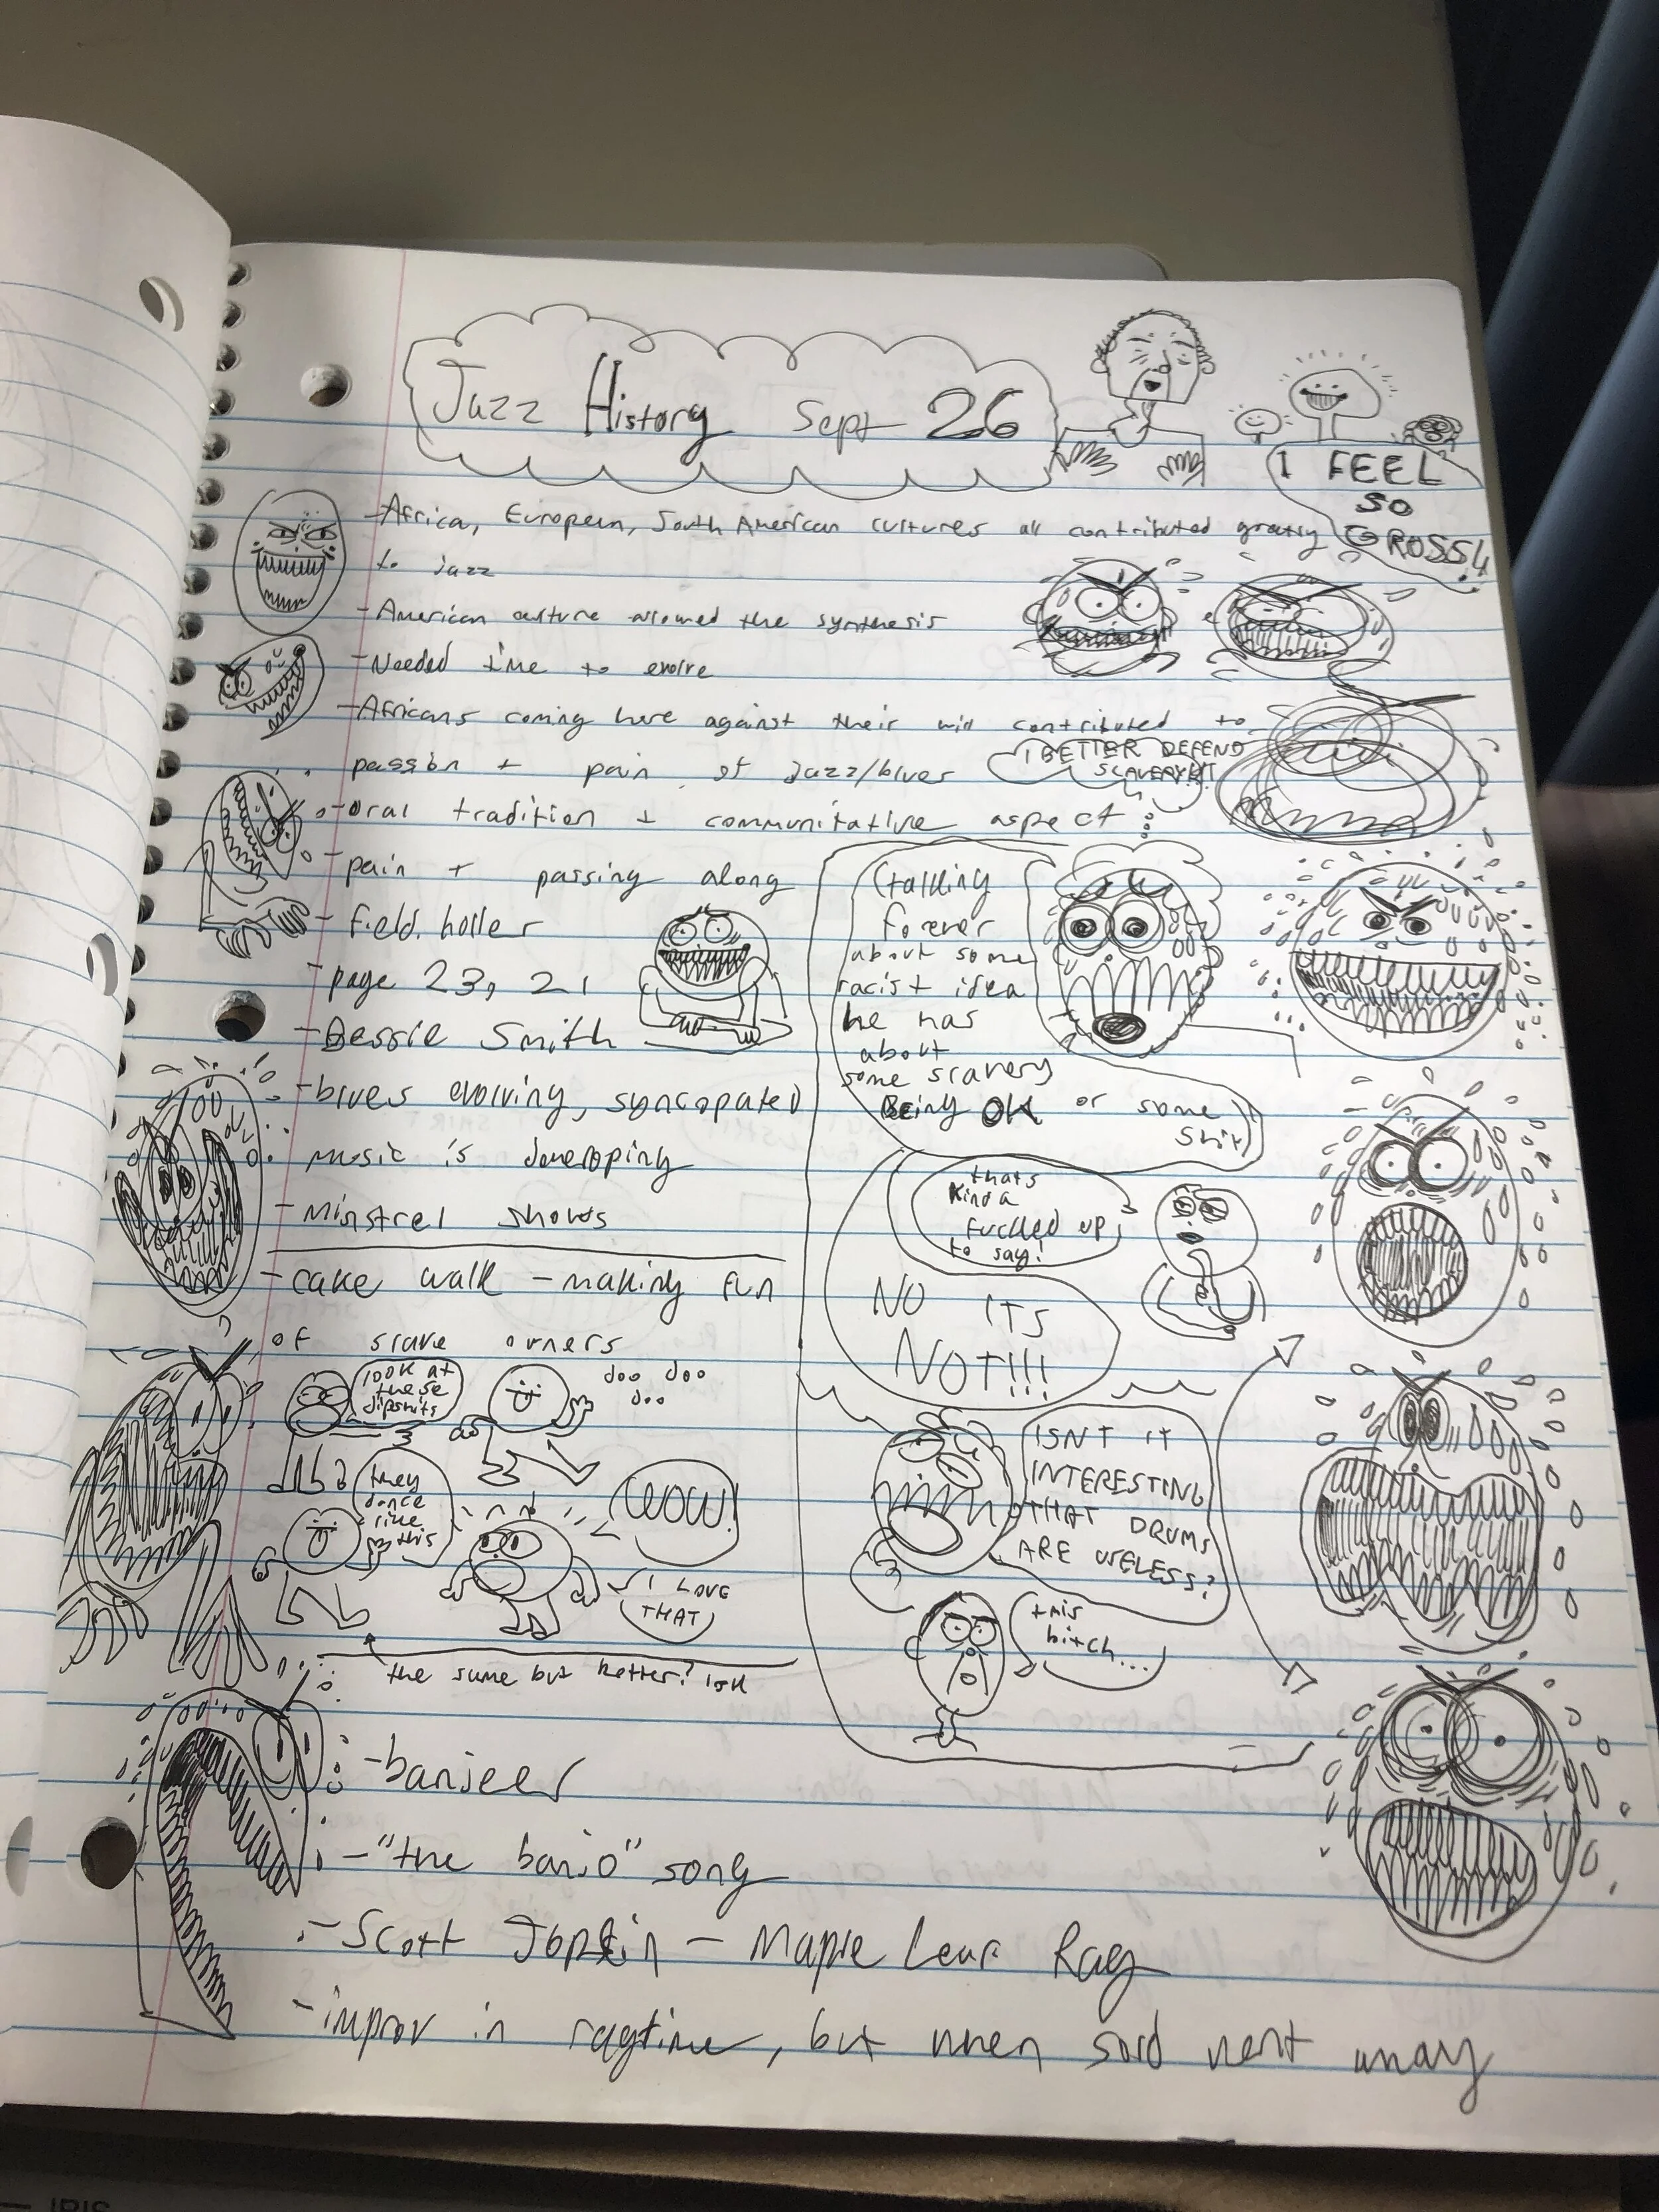 Jazz History Sept 26
I FEEL
SO
GROSS!
- Africa, European, South American cultures all contributed greatly
to jazz
- American culture allowed the synthesis
- Needed time to evolve
- Africans coming here against their will contributed to
passion + pain of Jazz/blues
I BETTER DEFEND
SLAVERY!!
- oral tradition + communitative aspect
- pain + passing along
- field holler
- page 23, 21
- Bessie Smith
- blues evolving, syncopated
music is developing
- Minstrel shows
- cake walk - making fun
of slave owners
look at
these
dipshits
doo doo
doo
they
dance
like
this
WOW!
I LOVE
THAT
the same but better? Idk
(talking
forever
about some
racist idea
he has
about
some slavery
Being OK or some
shit)
thats
kinda
fucked up
to say!
NO ITS
NOT!!!
ISNT IT
INTERESTING
THAT DRUMS
ARE USELESS?
this
bitch...
- banjeer
- "the banjo" song
- Scott Joplin - Maple Leaf Rag
- improv in ragtime, but when sold went away
IRIS